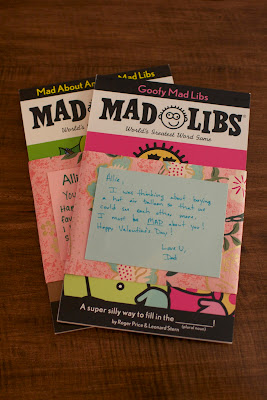 Mad About An Mad Libs
Goofy Mad Libs
MAD MAD LIBS
World's World's Greatest Word Game
Alli
You
Ha
fav
I
S
Allie,
I was thinking about buying
a hot air balloon so that we
could see each other more.
I must be MAD about you!
Happy Valentine's Day!
Love U,
Dad
A super silly way to fill in the
(plural noun)
by Roger Price & Leonard Stern